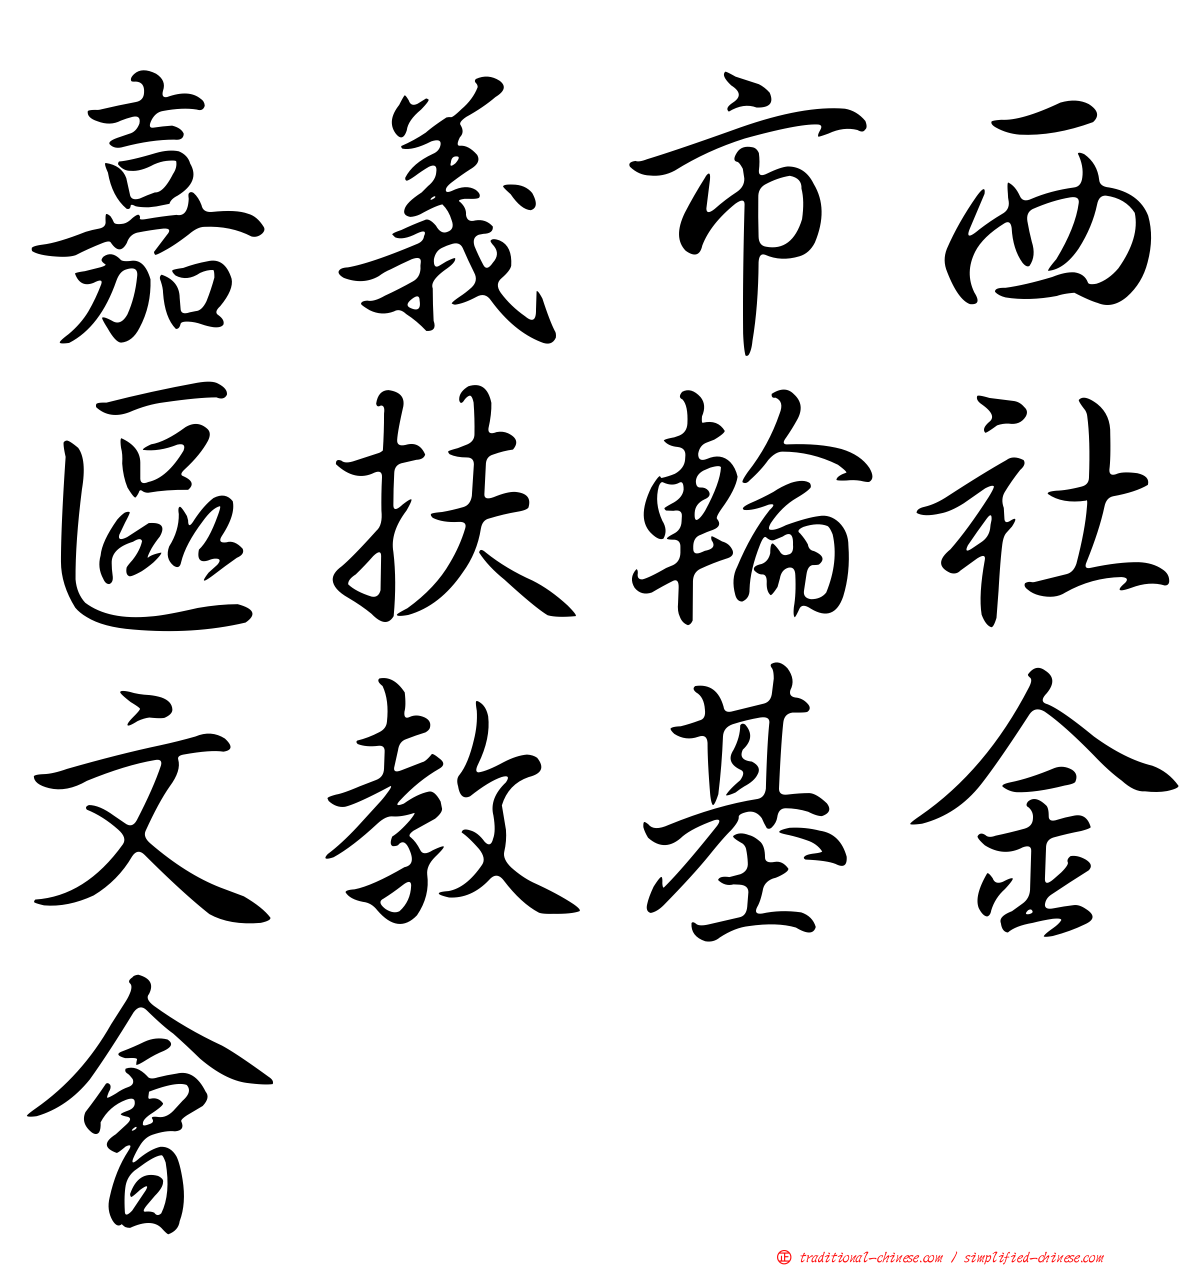 嘉義市西
區扶輪社
文教基金
會
正 traditional-chinese.com / simplified-chinese.com